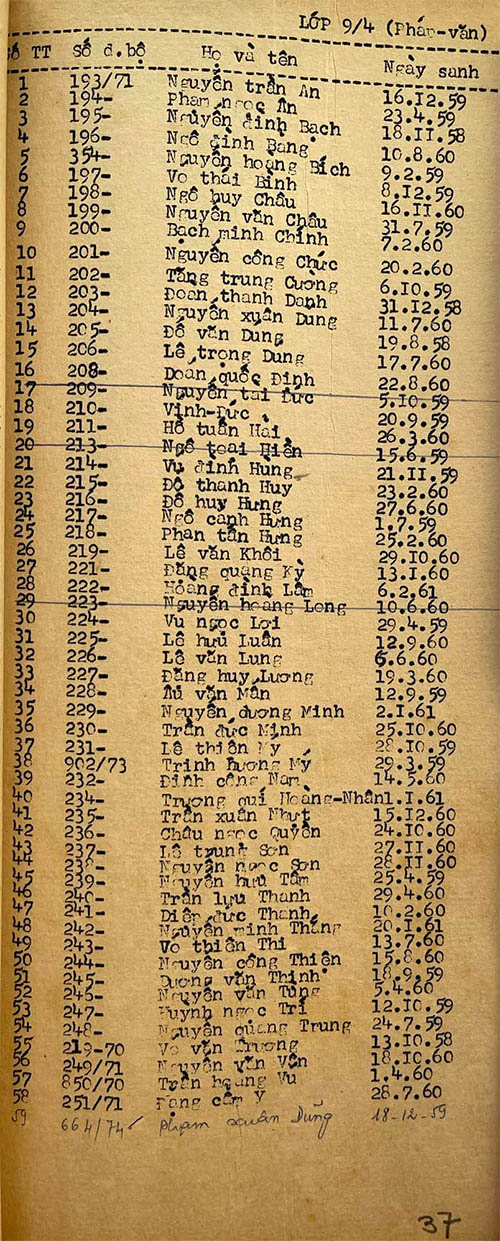 LỚP 9/4 (Pháp-văn)
Số TT Số d.bộ Họ và tên Ngày sanh
1 193/71 Nguyễn trần An 16.12.59
2 194- Phạm ngọc Ân 23.4.59
3 195- Nguyễn đình Bạch 18.11.58
4 196- Ngô đình Bang 10.8.60
5 354- Nguyễn hoàng Bích 9.2.59
6 197- Vo thái Bình 8.12.59
7 198- Ngô huy Châu 16.11.60
8 199- Nguyễn văn Châu 31.7.59
9 200- Bạch minh Chính 7.2.60
10 201- Nguyễn công Chức 20.2.60
11 202- Tăng trung Cường 6.10.59
12 203- Đoàn thanh Danh 31.12.58
13 204- Nguyễn xuân Dung 11.7.60
14 205- Đỗ văn Dung 19.8.58
15 206- Lê trọng Dung 17.7.60
16 208- Doan quốc Định 22.8.60
17 209- Nguyễn tai Đức 5.10.59
18 210- Vinh-Đức 20.9.59
19 211- Hồ tuấn Hải 26.3.60
20 213- Ngô toại Hiền 15.6.59
21 214- Vu đình Hùng 21.11.59
22 215- Đỗ thanh Huy 23.2.60
23 216- Đỗ huy Hưng 27.6.60
24 217- Ngô cảnh Hưng 1.7.59
25 218- Phan tấn Hưng 25.2.60
26 219- Lê văn Khôi 29.10.60
27 221- Đặng quang Kỳ 13.1.60
28 222- Hoàng đình Lâm 6.2.61
29 223- Nguyễn hoàng Long 10.6.60
30 224- Vu ngọc Lợi 29.4.59
31 225- Lê huu Luân 12.9.60
32 226- Lê văn Lung 6.6.60
33 227- Đặng huy Lương 19.3.60
34 228- Âu văn Mân 12.9.59
35 229- Nguyễn dương Minh 2.1.61
36 230- Trần đức Minh 25.10.60
37 231- Lê thiên My 28.10.59
38 902/73 Trinh hương Mỹ 29.3.59
39 232- Đinh công Nam 14.5.60
40 234- Trương quí Hoàng-Nhân 1.1.61
41 235- Trần xuân Nhựt 15.12.60
42 236- Châu ngọc Quyền 24.10.60
43 237- Lê trung Sơn 27.11.60
44 238- Nguyễn ngọc Sơn 28.11.60
45 239- Nguyễn huu Tâm 25.4.59
46 240- Trần lưu Thanh 29.4.60
47 241- Diệp đức Thanh 10.2.60
48 242- Nguyễn minh Thắng 20.1.61
49 243- Vo thiên Thi 13.7.60
50 244- Nguyễn công Thiên 15.8.60
51 245- Dương văn Thinh 18.9.59
52 246- Nguyễn văn Tùng 5.4.60
53 247- Huỳnh ngọc Trí 12.10.59
54 248- Nguyễn quang Trung 24.7.59
55 219-70 Vo văn Trương 13.10.58
56 249/71 Nguyễn văn Vân 18.10.60
57 850/70 Trần hoàng Vu 1.4.60
58 251/71 Đặng cẩm Y 28.7.60
59 664/74 phạm xuân Dũng 18-12-59
37